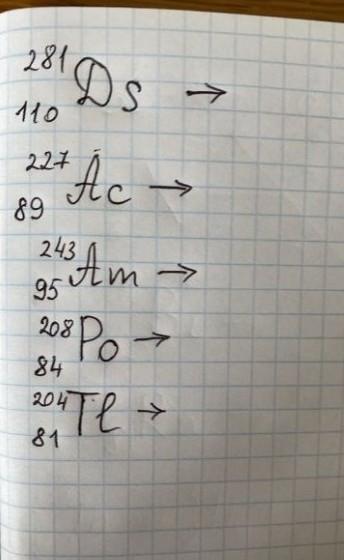 ²⁸¹₁₁₀Ds →
²²⁷₈₉Ac →
²⁴³₉₅Am →
²⁰⁸₈₄Po →
²⁰⁴₈₁Tl →